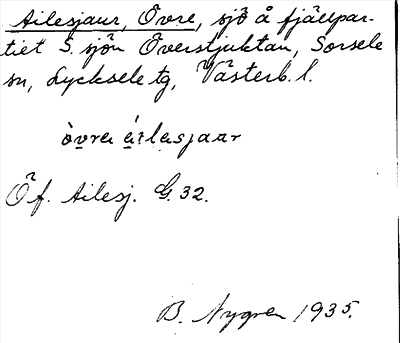 Ailesjaur, Övre, sjö å fjällpar-
tiet S. sjön Överstjuktan, Sorsele
sn, Lycksele tg, Västerb. l.
òvrea áilasjaar
Öf. Ailesj. G. 32.
B. Nygren 1935.